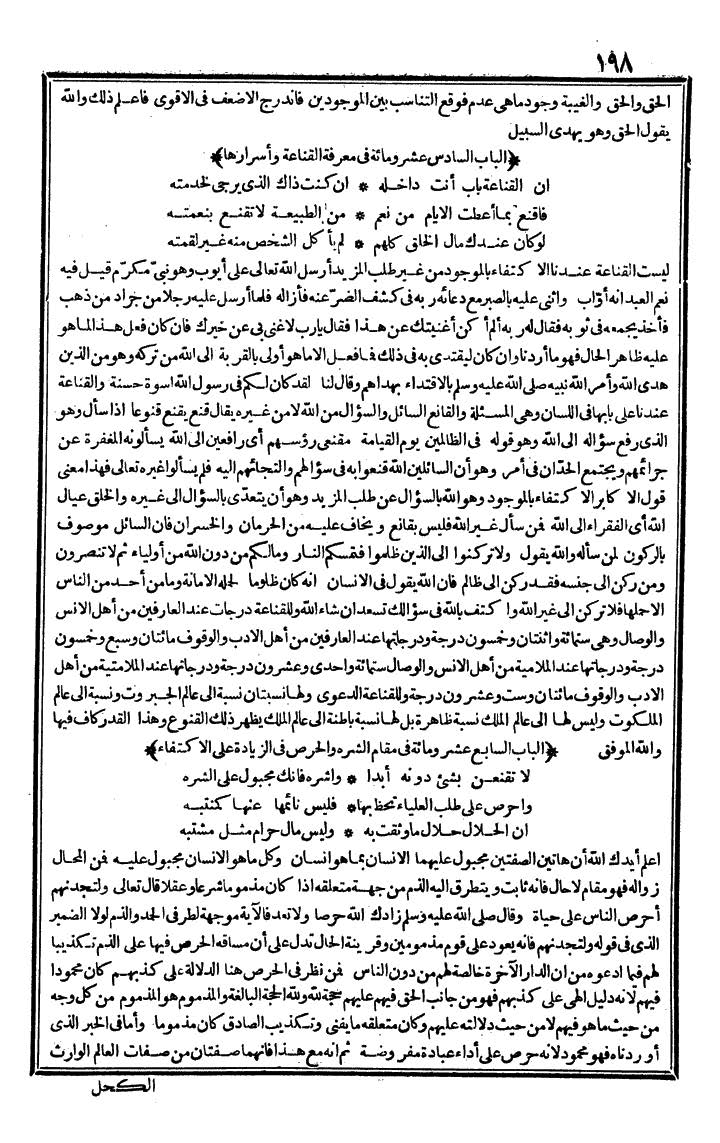 ١٩٨
الحق والحق والغيبة وجود ما هي عدم فوقع التناسب بين الموجودين فاندرج الاضعف في الاقوى فاعلم ذلك والله
يقول الحق وهو يهدى السبيل
﴿الباب السادس عشر ومائة في معرفة القناعة وأسرارها﴾
ان القناعة باب أنت داخله * ان كنت ذاك الذى يرجى لخدمته
فاقنع بما أعطت الايام من نعم * من الطبيعة لا تقنع بنعمته
لو كان عندك مال الخلق كلهم * لم يأكل الشخص منه غير لقمته
ليست القناعة عندنا الا كتفاء بالموجود من غير طلب المزيد أرسل الله تعالى على أيوب وهو نبىّ مكرّم قيل فيه
نعم العبد انه أوّاب واثنى عليه بالصبر مع دعائه ربه في كشف الضرّ عنه فأزاله فلما أرسل عليه رجلا من جراد من ذهب
فأخذ يجمعه في ثوبه فقال له ربه ألم أكن أغنيتك عن هذا فقال يارب لا غنى بى عن خيرك فان كان فعل هذا لما هو
عليه ظاهر الحال فهو ما أردنا وان كان ليقتدى به في ذلك فما فعل الا ما هو أولى بالقربة الى الله من تركه وهو من الذين
هدى الله وأمر الله نبيه صلى الله عليه وسلم بالاقتداء بهداهم وقال لنا لقد كان لكم في رسول الله اسوة حسنة والقناعة
عندنا على بابها في اللسان وهي المسئلة والقانع السائل والسؤال من الله لا من غيره يقال قنع يقنع قنوعا اذا سأل وهو
الذى رفع سؤاله الى الله وهو قوله في الظالمين يوم القيامة مقنعى رؤسهم أى رافعين الى الله يسألونه المغفرة عن
جرائمهم ويجتمع الحدّان في أمر وهو أن السائلين الله قنعوا به في سؤالهم والتجائهم اليه فلم يسألوا غيره تعالى فهذا معنى
قول الاكابر الاكتفاء بالموجود وهو الله بالسؤال عن طلب المزيد وهو أن يتعدّى بالسؤال الى غيره والخلق عيال
الله أى الفقراء الى الله فمن سأل غير الله فليس بقانع ويخاف عليه من الحرمان والخسران فان السائل موصوف
بالركون لمن سأله والله يقول ولا تركنوا الى الذين ظلموا فتمسكم النار وما لكم من دون الله من أولياء ثم لا تنصرون
ومن ركن الى جنسه فقد ركن الى ظالم فان الله يقول في الانسان انه كان ظلوما لحمله الامانة وما من أحد من الناس
الا حملها فلا تركن الى غير الله واكتف بالله في سؤالك تسعد ان شاء الله وللقناعة درجات عند العارفين من أهل الانس
والوصال وهي ستمائة واثنتان وخمسون درجة ودرجاتها عند العارفين من أهل الادب والوقوف مائتان وسبع وخمسون
درجة ودرجاتها عند الملامية من أهل الانس والوصال ستمائة واحدى وعشرون درجة ودرجاتها عند الملامتية من أهل
الادب والوقوف مائتان وست وعشرون درجة وللقناعة الدعوى ولها نسبتان نسبة الى عالم الجبروت ونسبة الى عالم
الملكوت وليس لها الى عالم الملك نسبة ظاهرة بل لها نسبة باطنة الى عالم الملك يظهر ذلك القنوع وهذا القدر كاف فيها
والله الموفق ﴿الباب السابع عشر ومائة في مقام الشره والحرص في الزيادة على الاكتفاء﴾
لا تقنعن بشئ دونه أبدا * واشره فانك مجبول على الشره
واحرص على طلب العلياء تحظ بها * فليس نائمها عنها كمنتبه
ان الحلال حلال ما وثقت به * وليس مال حرام مثل مشتبه
اعلم أيدك الله أن هاتين الصفتين مجبول عليهما الانسان بما هو انسان وكل ما هو الانسان مجبول عليه فمن المحال
زواله فهو مقام لا حال فانه ثابت ويتطرق اليه الذم من جهة متعلقه اذا كان مذموما شرعا وعقلا قال تعالى ولتجدنهم
أحرص الناس على حياة وقال صلى الله عليه وسلم زادك الله حرصا ولا تعد فالآية موجهة لطرفى الحمد والذم لولا الضمير
الذى في قوله ولتجدنهم فانه يعود على قوم مذمومين وقرينة الحال تدل على أن مساقه الحرص فيها على الذم تكذيبا
لهم فيما ادعوه من ان الدار الآخرة خالصة لهم من دون الناس فمن نظر في الحرص هنا الدلالة على كذبهم كان محمودا
فيهم لانه دليل الهى على كذبهم فهو من جانب الحق فيهم عليهم حجة لله ولله الحجة البالغة والمذموم هو المذموم من كل وجه
من حيث ما هو فيهم لا من حيث دلالته عليهم وكان متعلقه ما يفنى وتكذيب الصادق كان مذموما وأما في الخبر الذى
أوردناه فهو محمود لانه حرص على أداء عبادة مفروضة ثم انه مع هذا فانهما صفتان من صفات العالم الوارث
الكحل